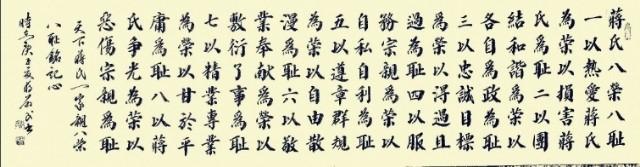 蔣氏八榮八耻
一以熱愛蔣氏
為榮以損害蔣
氏為耻二以團
結和諧為榮以
各自為政為耻
三以忠誠目標
為榮以得過且
過為耻四以服
務宗親為榮以
自私自利為耻
五以遵章群規
為榮以自由散
漫為耻六以敬
業奉獻為榮以
敷衍了事為耻
七以精業專業
為榮以甘於平
庸為耻八以蔣
氏爭光為榮以
惡傷宗親為耻
天下蔣氏一家親八榮
八耻銘記心
庚子夏